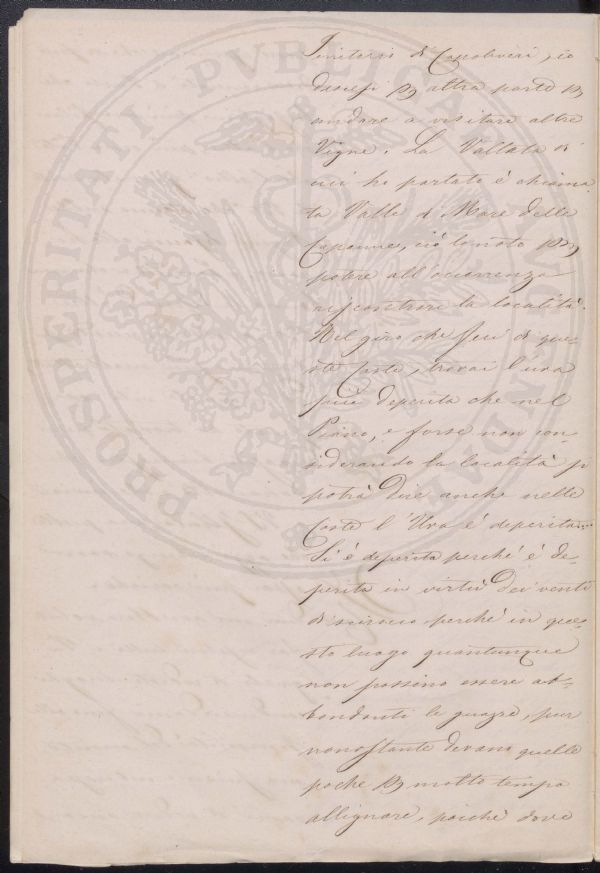 PROSPERITATI PUBLICAE AUGENDAE
Territorio di Capoliveri, io
discesi p altra parte p
andare a visitare altre
Vigne. La Vallata di
cui ho parlato è chiama-
ta Valle di Mare delle
Capanne, ciò lo noto p
potere all'occorrenza
riscontrare la località.
Nel giro che feci di que-
ste Coste, trovai l'uva
più deperita che nel
Piano, e forse non con-
siderando la località si
potrà dire anche nelle
Coste l'Uva è deperita....
Si è deperita perchè è de-
perita in virtù dei venti
di scirocco perchè in que-
sto luogo quantunque
non possino essere ab-
bondanti le guazze, pur
nonostante devono quelle
poche p molto tempo
allignare, poichè dove